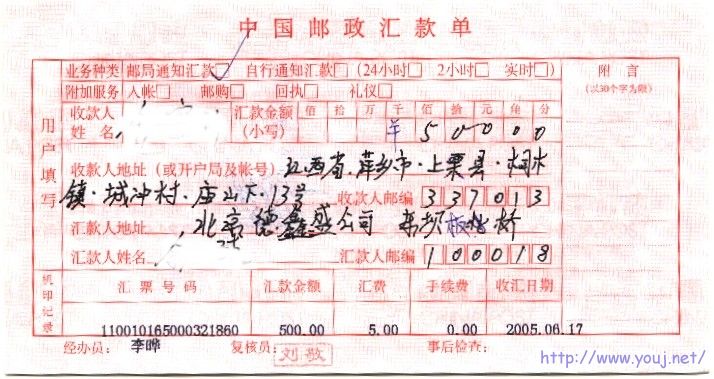 中国邮政汇款单
业务种类 邮局通知汇款□ 自行通知汇款□ (24小时□ 2小时□ 实时□) 附言
附加服务 入帐□ 邮购□ 回执□ 礼仪□ (以30个字为限)
用户填写
收款人姓名
汇款金额(小写) 佰 拾 万 千 佰 拾 元 角 分
羊 5 0 0 0 0
收款人地址(或开户局及帐号) 江西省·萍乡市·上栗县·桐木
镇·城冲村·庙山下·13号 收款人邮编 337013
汇款人地址 北京德鑫盛公司
汇款人姓名 汇款人邮编 100018
机印记录
汇票号码 汇款金额 汇费 手续费 收汇日期
1100101650000321860 500.00 5.00 0.00 2005.06.17
经办员: 李晔 复核员: 刘敬 事后检查:
http://www.youj.net/